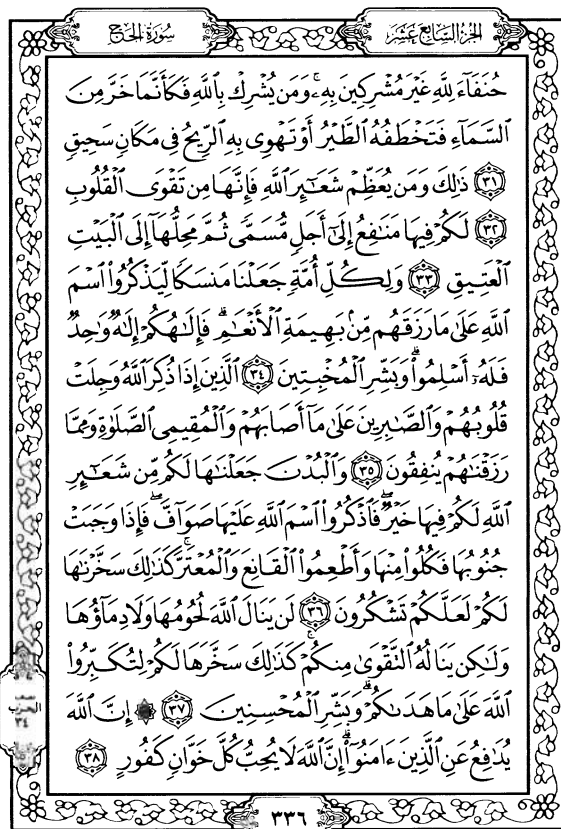 سُورَةُ الحَجِّ
الجُزْءُ السَّابِعَ عَشَرَ
حُنَفَآءَ لِلَّهِ غَيْرَ مُشْرِكِينَ بِهِۦۚ وَمَن يُشْرِكْ بِٱللَّهِ فَكَأَنَّمَا خَرَّ مِنَ
ٱلسَّمَآءِ فَتَخْطَفُهُ ٱلطَّيْرُ أَوْ تَهْوِى بِهِ ٱلرِّيحُ فِى مَكَانٍ سَحِيقٍ
٣١ ذَٰلِكَ وَمَن يُعَظِّمْ شَعَٰٓئِرَ ٱللَّهِ فَإِنَّهَا مِن تَقْوَى ٱلْقُلُوبِ
٣٢ لَكُمْ فِيهَا مَنَٰفِعُ إِلَىٰٓ أَجَلٍ مُّسَمًّى ثُمَّ مَحِلُّهَآ إِلَى ٱلْبَيْتِ
ٱلْعَتِيقِ ٣٣ وَلِكُلِّ أُمَّةٍ جَعَلْنَا مَنسَكًا لِّيَذْكُرُوا۟ ٱسْمَ
ٱللَّهِ عَلَىٰ مَا رَزَقَهُم مِّنۢ بَهِيمَةِ ٱلْأَنْعَٰمِۗ فَإِلَٰهُكُمْ إِلَٰهٌ وَٰحِدٌ
فَلَهُۥٓ أَسْلِمُوا۟ۗ وَبَشِّرِ ٱلْمُخْبِتِينَ ٣٤ ٱلَّذِينَ إِذَا ذُكِرَ ٱللَّهُ وَجِلَتْ
قُلُوبُهُمْ وَٱلصَّٰبِرِينَ عَلَىٰ مَآ أَصَابَهُمْ وَٱلْمُقِيمِى ٱلصَّلَوٰةِ وَمِمَّا
رَزَقْنَٰهُمْ يُنفِقُونَ ٣٥ وَٱلْبُدْنَ جَعَلْنَٰهَا لَكُم مِّن شَعَٰٓئِرِ
ٱللَّهِ لَكُمْ فِيهَا خَيْرٌۖ فَٱذْكُرُوا۟ ٱسْمَ ٱللَّهِ عَلَيْهَا صَوَآفَّۖ فَإِذَا وَجَبَتْ
جُنُوبُهَا فَكُلُوا۟ مِنْهَا وَأَطْعِمُوا۟ ٱلْقَانِعَ وَٱلْمُعْتَرَّۚ كَذَٰلِكَ سَخَّرْنَٰهَا
لَكُمْ لَعَلَّكُمْ تَشْكُرُونَ ٣٦ لَن يَنَالَ ٱللَّهَ لُحُومُهَا وَلَا دِمَآؤُهَا
وَلَٰكِن يَنَالُهُ ٱلتَّقْوَىٰ مِنكُمْۚ كَذَٰلِكَ سَخَّرَهَا لَكُمْ لِتُكَبِّرُوا۟
ٱللَّهَ عَلَىٰ مَا هَدَىٰكُمْۗ وَبَشِّرِ ٱلْمُحْسِنِينَ ٣٧ ۞ إِنَّ ٱللَّهَ
يُدَٰفِعُ عَنِ ٱلَّذِينَ ءَامَنُوٓا۟ۗ إِنَّ ٱللَّهَ لَا يُحِبُّ كُلَّ خَوَّانٍ كَفُورٍ ٣٨
الحزب
٣٤
٣٣٦